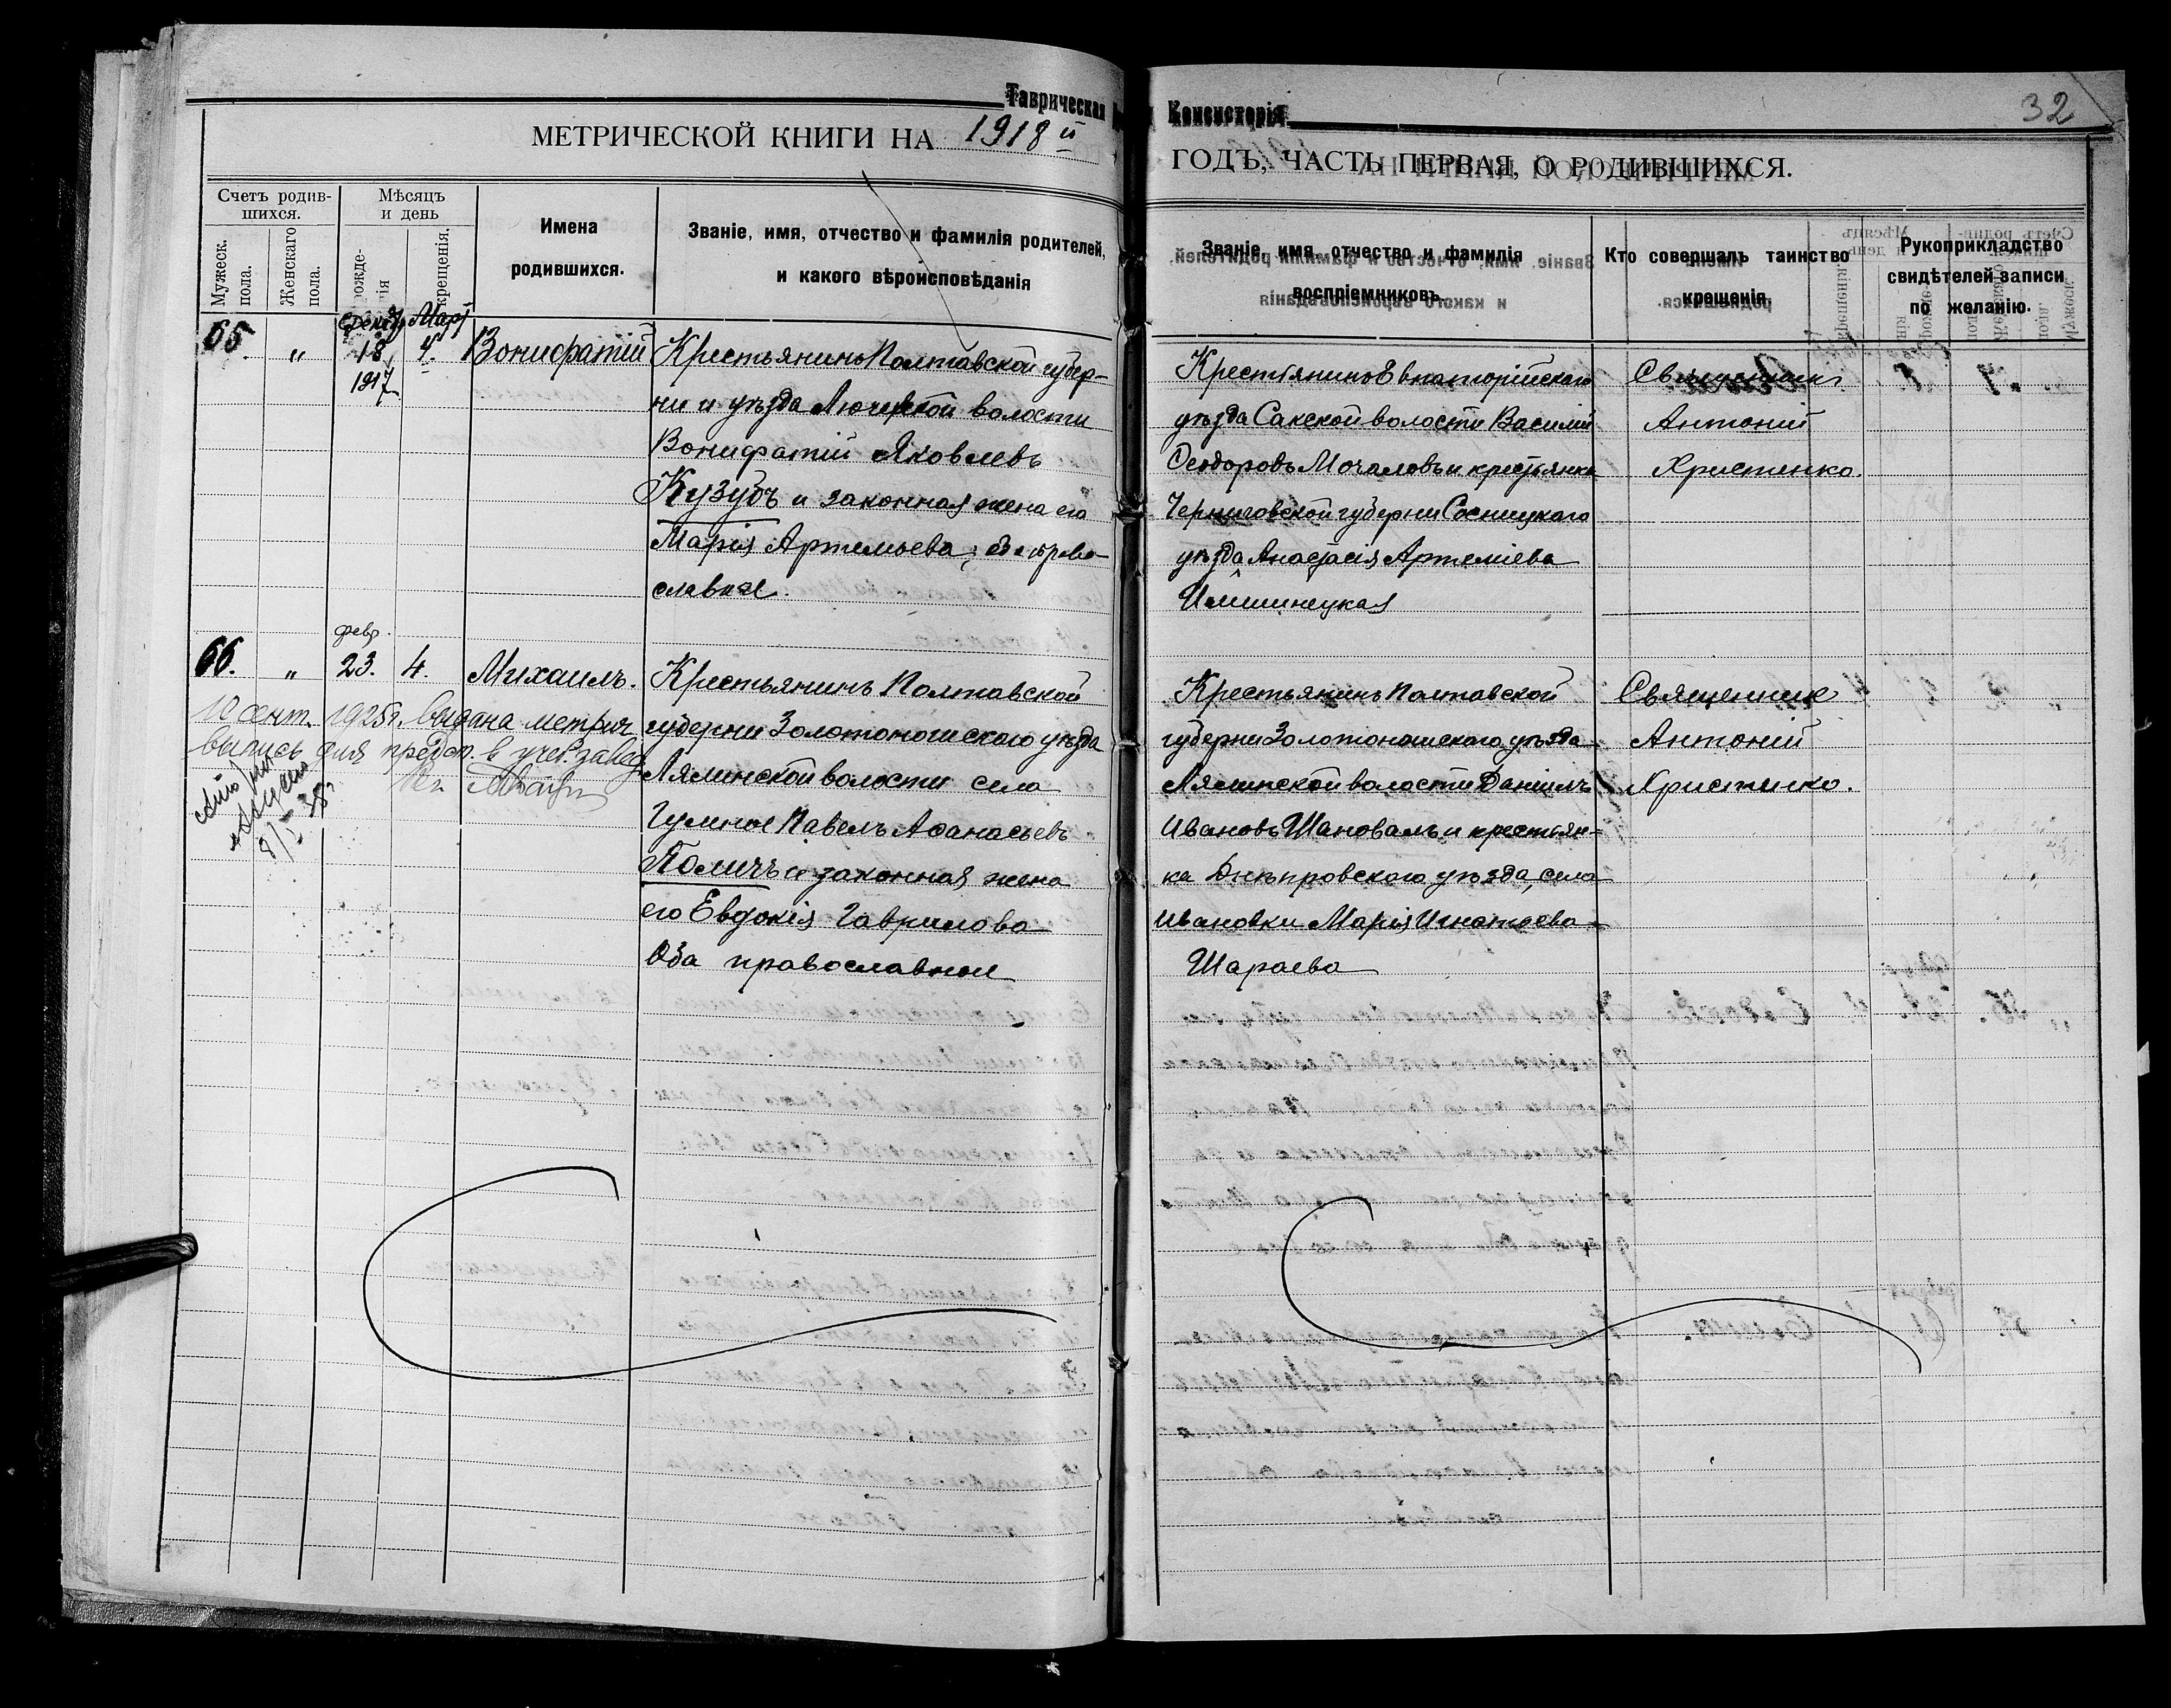 Таврическая
Консисторія
32
МЕТРИЧЕСКОЙ КНИГИ НА 1918 й
ГОДЪ, ЧАСТЬ ПЕРВАЯ, О РОДИВШИХСЯ.
Счетъ родив-
шихся.
Мужеск. пола.
Женскаго пола.
Мѣсяцъ
и день
крещенія.
Имена
родившихся.
Званіе, имя, отчество и фамилія родителей,
и какого вѣроисповѣданія
Званіе, имя, отчество и фамилія
воспріемниковъ.
Кто совершалъ таинство
крещенія
Рукоприкладство
свидѣтелей записи
по желанію.
65. " 18 1917 Март 4. Вонифатій
Крестьянинъ Полтавской губер-
ни и уѣзда волости
Вонифатій Яковлевъ
Кузубъ и законная жена его
Марія Артемьева, оба право-
славные.
Крестьянинъ Евпаторійскаго
уѣзда Сакской волости Василій
Ѳеодоровъ Мочаловъ и крестьянка
Черниговской губерни Сосницкаго
уѣзда Анастасія Артеміева
Священникъ
Антоній
Христенко.
66. " февр. 23. 4. Михаилъ.
Крестьянинъ Полтавской
губерни Золотоношскаго уѣзда
Лялинской волости села
Павелъ Аѳанасьевъ
и законная жена
его Евдокія Гаврилова
Оба православные
Крестьянинъ Полтавской
губерни Золотоношскаго уѣзда
Лялинской волости Даніилъ
Ивановъ Шаповалъ и крестьян-
ка Днѣпровскаго уѣзда, села
Ивановки Марія Игнатьева
Шараева
Священникъ
Антоній
Христенко.
10 сент. 1925 г. выдана метрич.
выпись для предст. в учеб. завед.